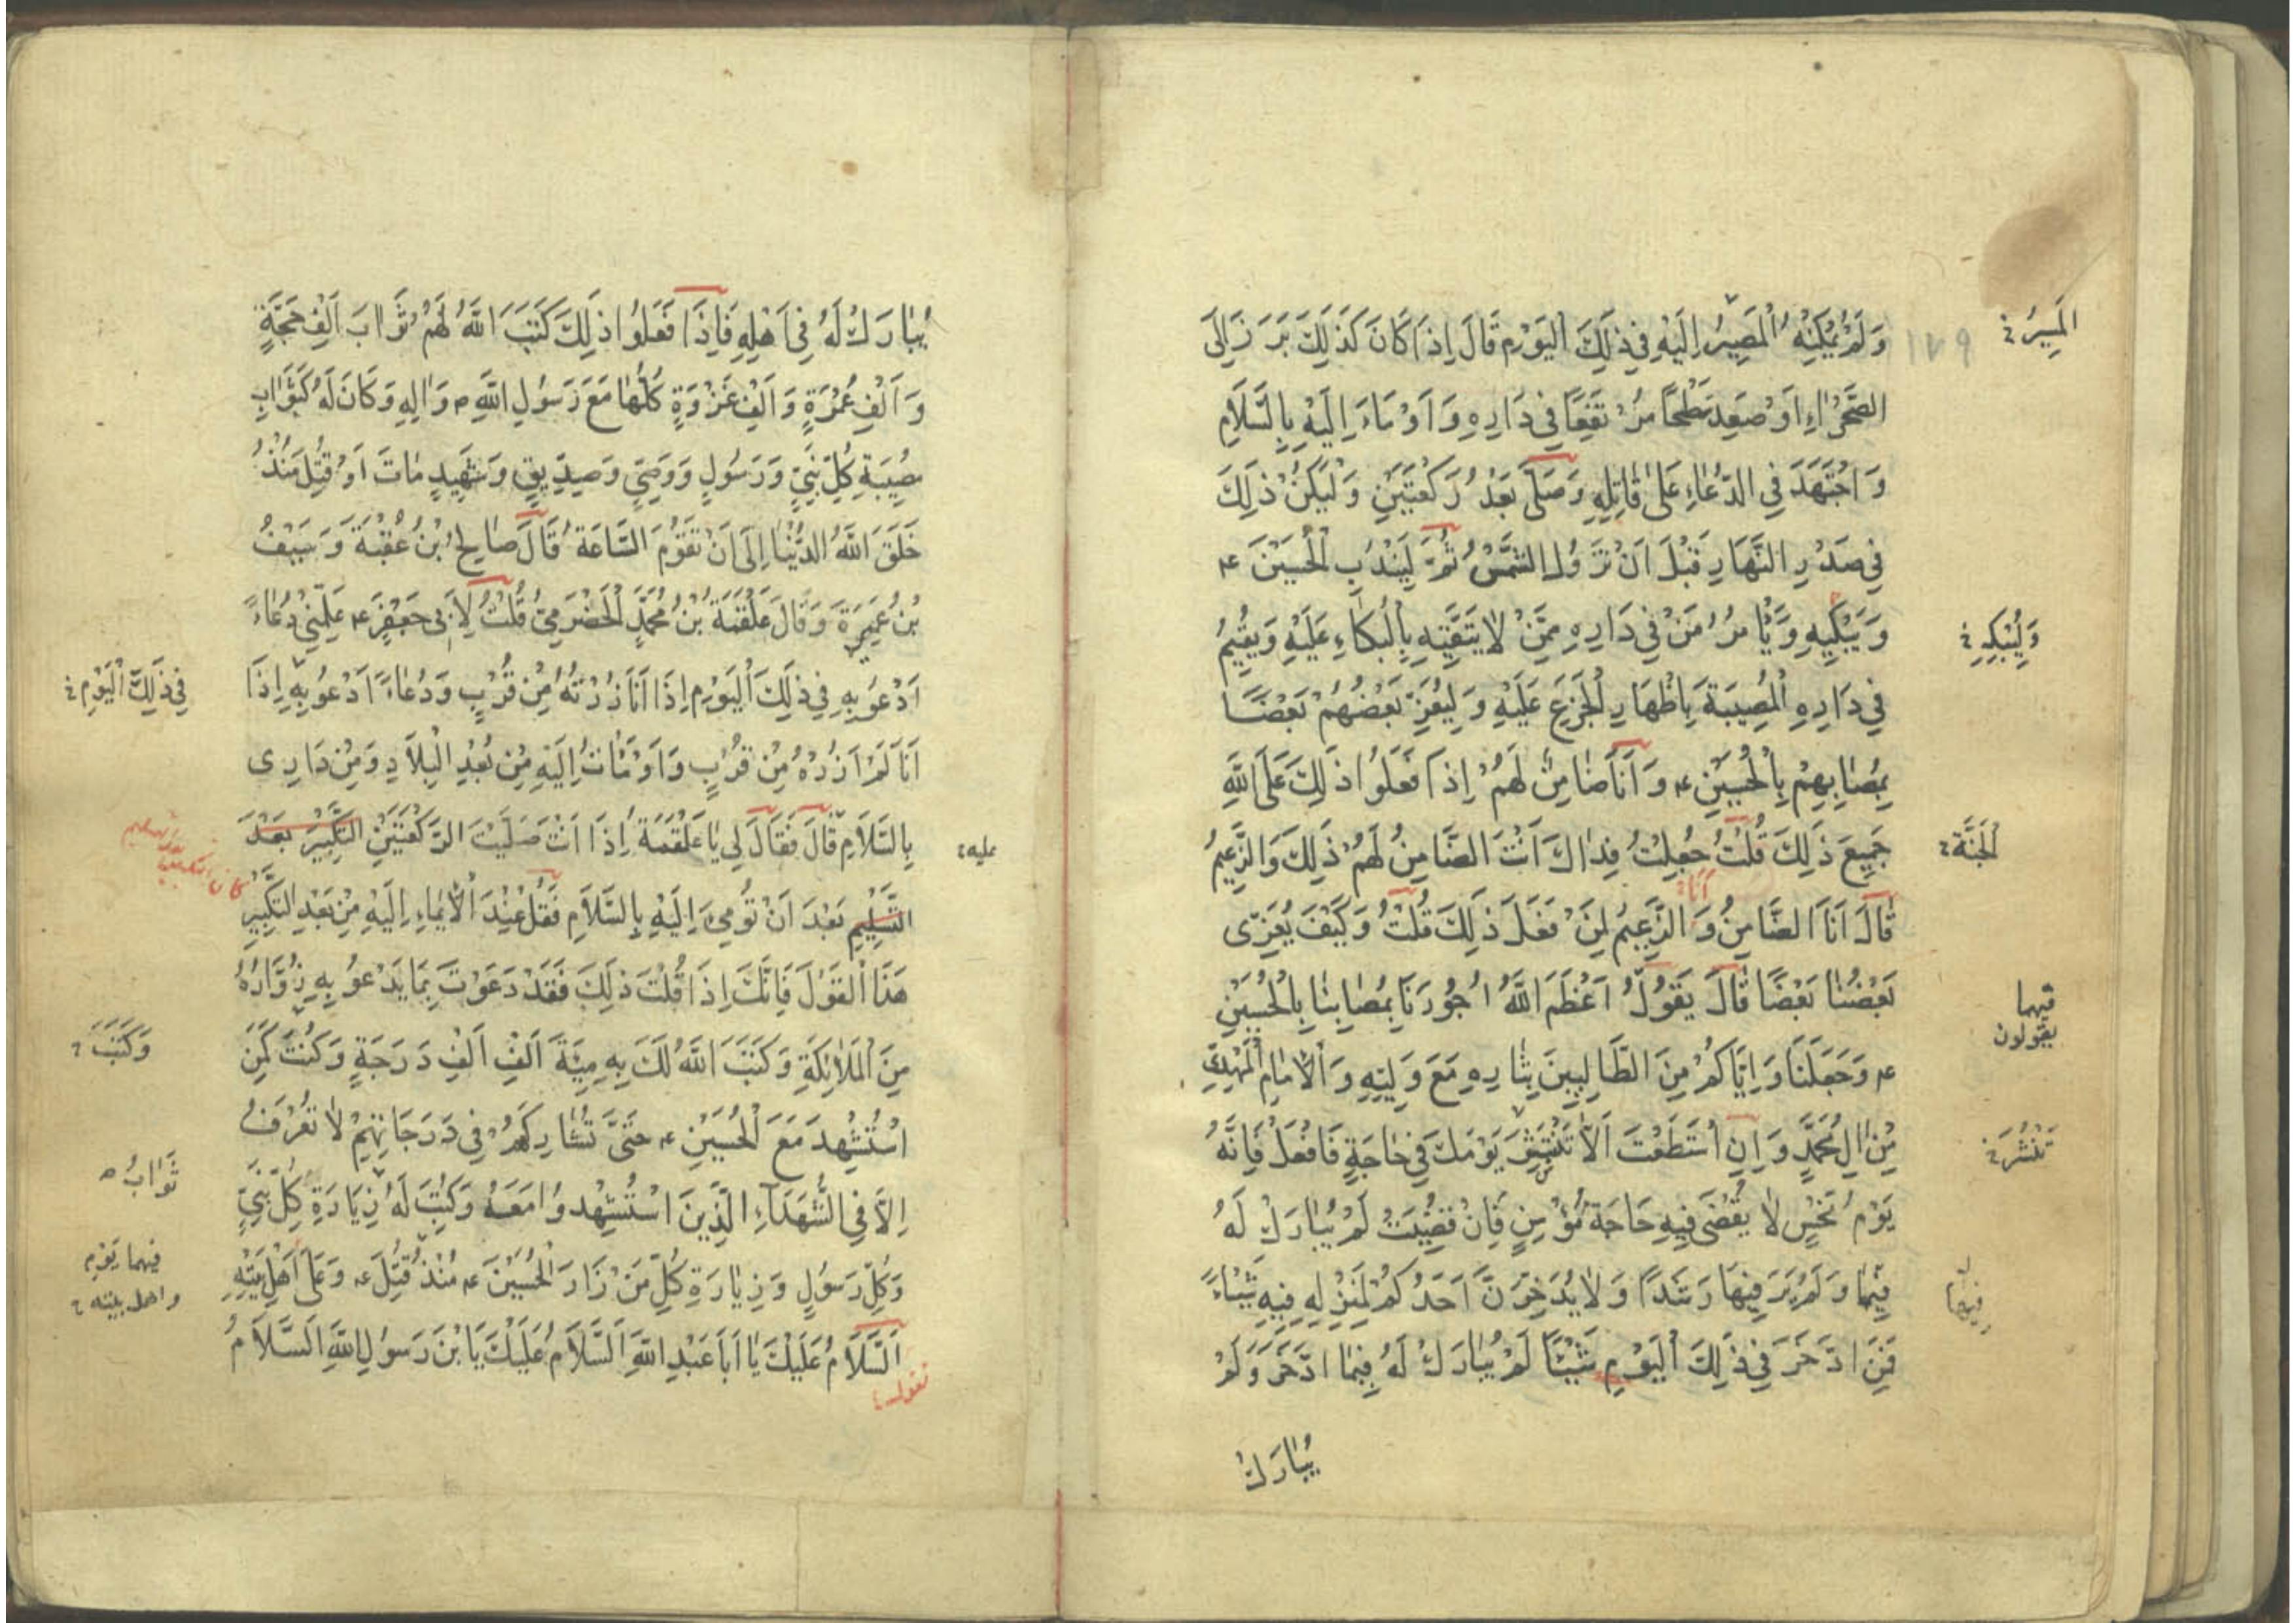 وَلَمْ يُمْكِنْهُ الْمَصِيرُ اِلَيْهِ فِي ذٰلِكَ الْيَوْمِ قَالَ اِذَا كَانَ كَذٰلِكَ بَرَزَ اِلَى
المَسِيرُ
١٧٩
الصَّحْرَاءِ اَوْ صَعِدَ سَطْحًا مُرْتَفِعًا فِي دَارِهِ وَ اَوْمَاءَ اِلَيْهِ بِالسَّلَامِ
وَ اجْتَهَدَ فِي الدُّعَاءِ عَلٰى قَاتِلِهِ وَصَلّٰى بَعْدُ رَكْعَتَيْنِ وَلْيَكُنْ ذٰلِكَ
فِي صَدْرِ النَّهَارِ قَبْلَ اَنْ تَزُولَ الشَّمْسُ ثُمَّ لْيَنْدُبِ الْحُسَيْنَ ع
وَ يَبْكِيهِ وَ يَأْمُرُ مَنْ فِي دَارِهِ مِمَّنْ لَا يَتَّقِيهِ بِالْبُكَاءِ عَلَيْهِ وَ يُقِيمُ
وَلْيَبْكِهِ
فِي دَارِهِ الْمُصِيبَةَ بِاِظْهَارِ الْجَزَعِ عَلَيْهِ وَ لْيُعَزِّ بَعْضُهُمْ بَعْضًا
بِمُصَابِهِمْ بِالْحُسَيْنِ ع وَ اَنَا ضَامِنٌ لَهُمْ اِذَا فَعَلُوا ذٰلِكَ عَلَى اللّٰهِ
جَمِيعَ ذٰلِكَ قُلْتُ جُعِلْتُ فِدَاكَ اَنْتَ الضَّامِنُ لَهُمْ ذٰلِكَ وَالزَّعِيمُ
الْجَنَّةَ
قَالَ اَنَا الضَّامِنُ وَ الزَّعِيمُ لِمَنْ فَعَلَ ذٰلِكَ قُلْتُ وَ كَيْفَ يُعَزِّي
اَنَا
بَعْضُنَا بَعْضًا قَالَ يَقُولُ اَعْظَمَ اللّٰهُ اُجُورَنَا بِمُصَابِنَا بِالْحُسَيْنِ
فيهما
يقولون
ع وَجَعَلَنَا وَ اِيَّاكُمْ مِنَ الطَّالِبِينَ بِثَارِهِ مَعَ وَلِيِّهِ وَ الْاِمَامِ الْمَهْدِيِّ
مِنْ اٰلِ مُحَمَّدٍ وَ اِنِ اسْتَطَعْتَ اَلَّا تَنْتَشِرَ يَوْمَكَ فِي حَاجَةٍ فَافْعَلْ فَاِنَّهُ
تَنْشُرَ
يَوْمُ نَحْسٍ لَا يُقْضٰى فِيهِ حَاجَةُ مُؤْمِنٍ فَاِنْ قُضِيَتْ لَمْ يُبَارَكْ لَهُ
فِيهَا وَ لَمْ يَرَ فِيهَا رَشَدًا وَ لَا يُدَّخِرَنَّ اَحَدُكُمْ لِمَنْزِلِهِ فِيهِ شَيْئًا
فيها
فَمَنِ ادَّخَرَ فِي ذٰلِكَ الْيَوْمِ شَيْئًا لَمْ يُبَارَكْ لَهُ فِيمَا ادَّخَرَ وَ لَمْ
يُبَارَكْ
يُبَارَكْ لَهُ فِي اَهْلِهِ فَاِذَا فَعَلُوا ذٰلِكَ كَتَبَ اللّٰهُ لَهُمْ ثَوَابَ اَلْفِ حَجَّةٍ
وَ اَلْفِ عُمْرَةٍ وَ اَلْفِ غَزْوَةٍ كُلُّهَا مَعَ رَسُولِ اللّٰهِ ص وَ اٰلِهِ وَ كَانَ لَهُ كَثَوَابِ
مُصِيبَةِ كُلِّ نَبِيٍّ وَ رَسُولٍ وَ وَصِيٍّ وَ صِدِّيقٍ وَ شَهِيدٍ مَاتَ اَوْ قُتِلَ مُنْذُ
خَلَقَ اللّٰهُ الدُّنْيَا اِلٰى اَنْ تَقُومَ السَّاعَةُ قَالَ صَالِحُ بْنُ عُقْبَةَ وَ سَيْفُ
بْنُ عَمِيرَةَ وَ قَالَ عَلْقَمَةُ بْنُ مُحَمَّدٍ الْحَضْرَمِيُّ قُلْتُ لِاَبِي جَعْفَرٍ ع عَلِّمْنِي دُعَاءً
اَدْعُو بِهِ فِي ذٰلِكَ الْيَوْمِ اِذَا اَنَا زُرْتُهُ مِنْ قُرْبٍ وَ دُعَاءً اَدْعُو بِهِ اِذَا
فِي ذٰلِكَ الْيَوْمِ
اَنَا لَمْ اَزُرْهُ مِنْ قُرْبٍ وَ اَوْمَأْتُ اِلَيْهِ مِنْ بُعْدِ الْبِلَادِ وَ مِنْ دَارِي
بِالسَّلَامِ قَالَ فَقَالَ لِي يَا عَلْقَمَةُ اِذَا اَنْتَ صَلَّيْتَ الرَّكْعَتَيْنِ التَّكْبِيرَ بَعْدَ
عليه
التَّسْلِيمِ بَعْدَ اَنْ تُومِيَ اِلَيْهِ بِالسَّلَامِ فَقُلْ عِنْدَ الْاِيمَاءِ اِلَيْهِ مِنْ بَعْدِ التَّكْبِيرِ
هٰذَا الْقَوْلَ فَاِنَّكَ اِذَا قُلْتَ ذٰلِكَ فَقَدْ دَعَوْتَ بِمَا يَدْعُو بِهِ زُوَّارُهُ
مِنَ الْمَلَائِكَةِ وَ كَتَبَ اللّٰهُ لَكَ بِهِ مِيَّةَ اَلْفِ اَلْفِ دَرَجَةٍ وَ كُنْتَ كَمَنِ
وَكَتَبَ
اسْتُشْهِدَ مَعَ الْحُسَيْنِ ع حَتّٰى تُشَارِكَهُمْ فِي دَرَجَاتِهِمْ لَا تُعْرَفُ
اِلَّا فِي الشُّهَدَاءِ الَّذِينَ اسْتُشْهِدُوا مَعَهُ وَ كُتِبَ لَهُ زِيَارَةِ كُلِّ نَبِيٍّ
ثَوَابُ
وَ كُلِّ رَسُولٍ وَ زِيَارَةِ كُلِّ مَنْ زَارَ الْحُسَيْنَ ع مُنْذُ قُتِلَ ع وَ عَلٰى اَهْلِ بَيْتِهِ
فيهما يَوْمِ
واهل بيته
اَلسَّلَامُ عَلَيْكَ يَا اَبَا عَبْدِ اللّٰهِ اَلسَّلَامُ عَلَيْكَ يَا بْنَ رَسُولِ اللّٰهِ اَلسَّلَامُ
تقول